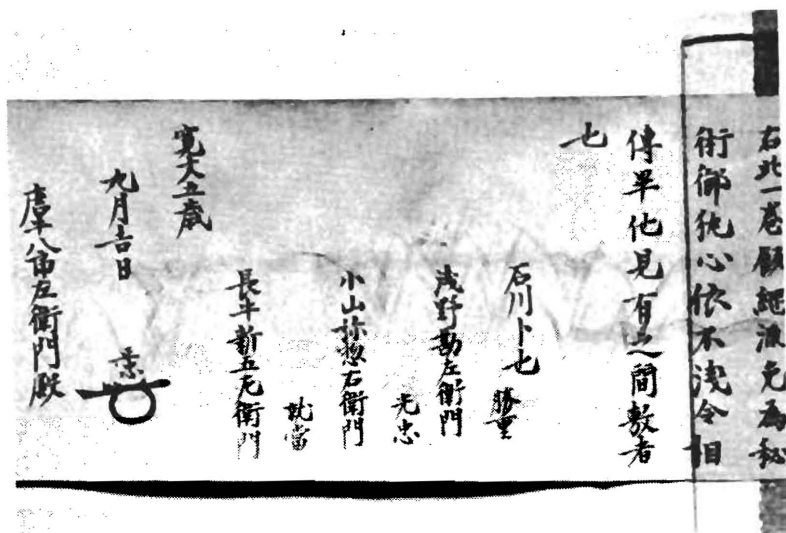 右此一巻願絶流免為秘
術御執心依不浅令相
傳畢他見有之間敷者
也
石川卜七
勝重
浅野勘左衛門
光忠
小山弥惣右衛門
就當
長半新五左衛門
寛文五歳
九月吉日
八角左衛門殿